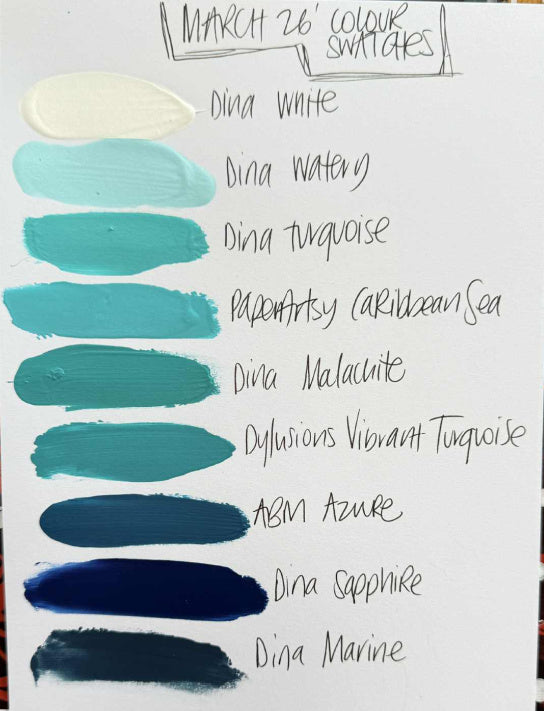 MARCH 26' COLOUR
SWATCHES
Dina White
Dina Watery
Dina turquoise
PaperArtsy CaRibbean Sea
Dina Malachite
Dylusions Vibrant Turquoise
ABM AZURE
Dina SapphiRe
Dina Marine